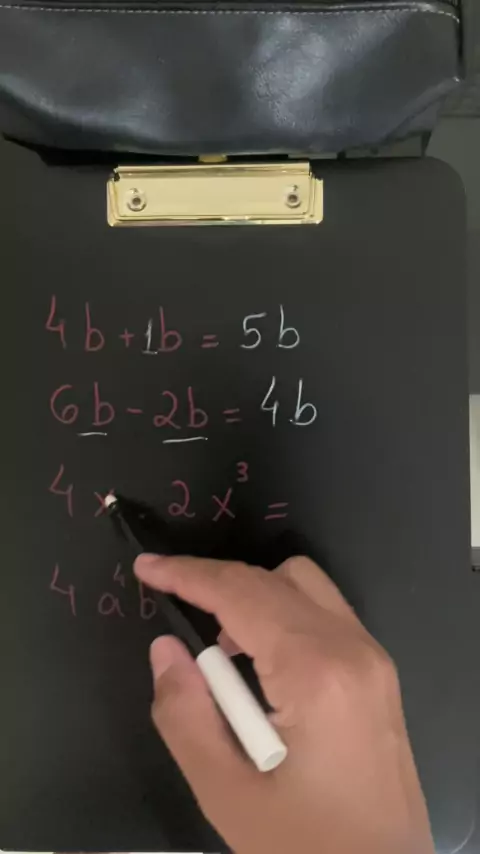 4b + 1b = 5b
6b - 2b = 4b
4x · 2x³ =
4a⁴b